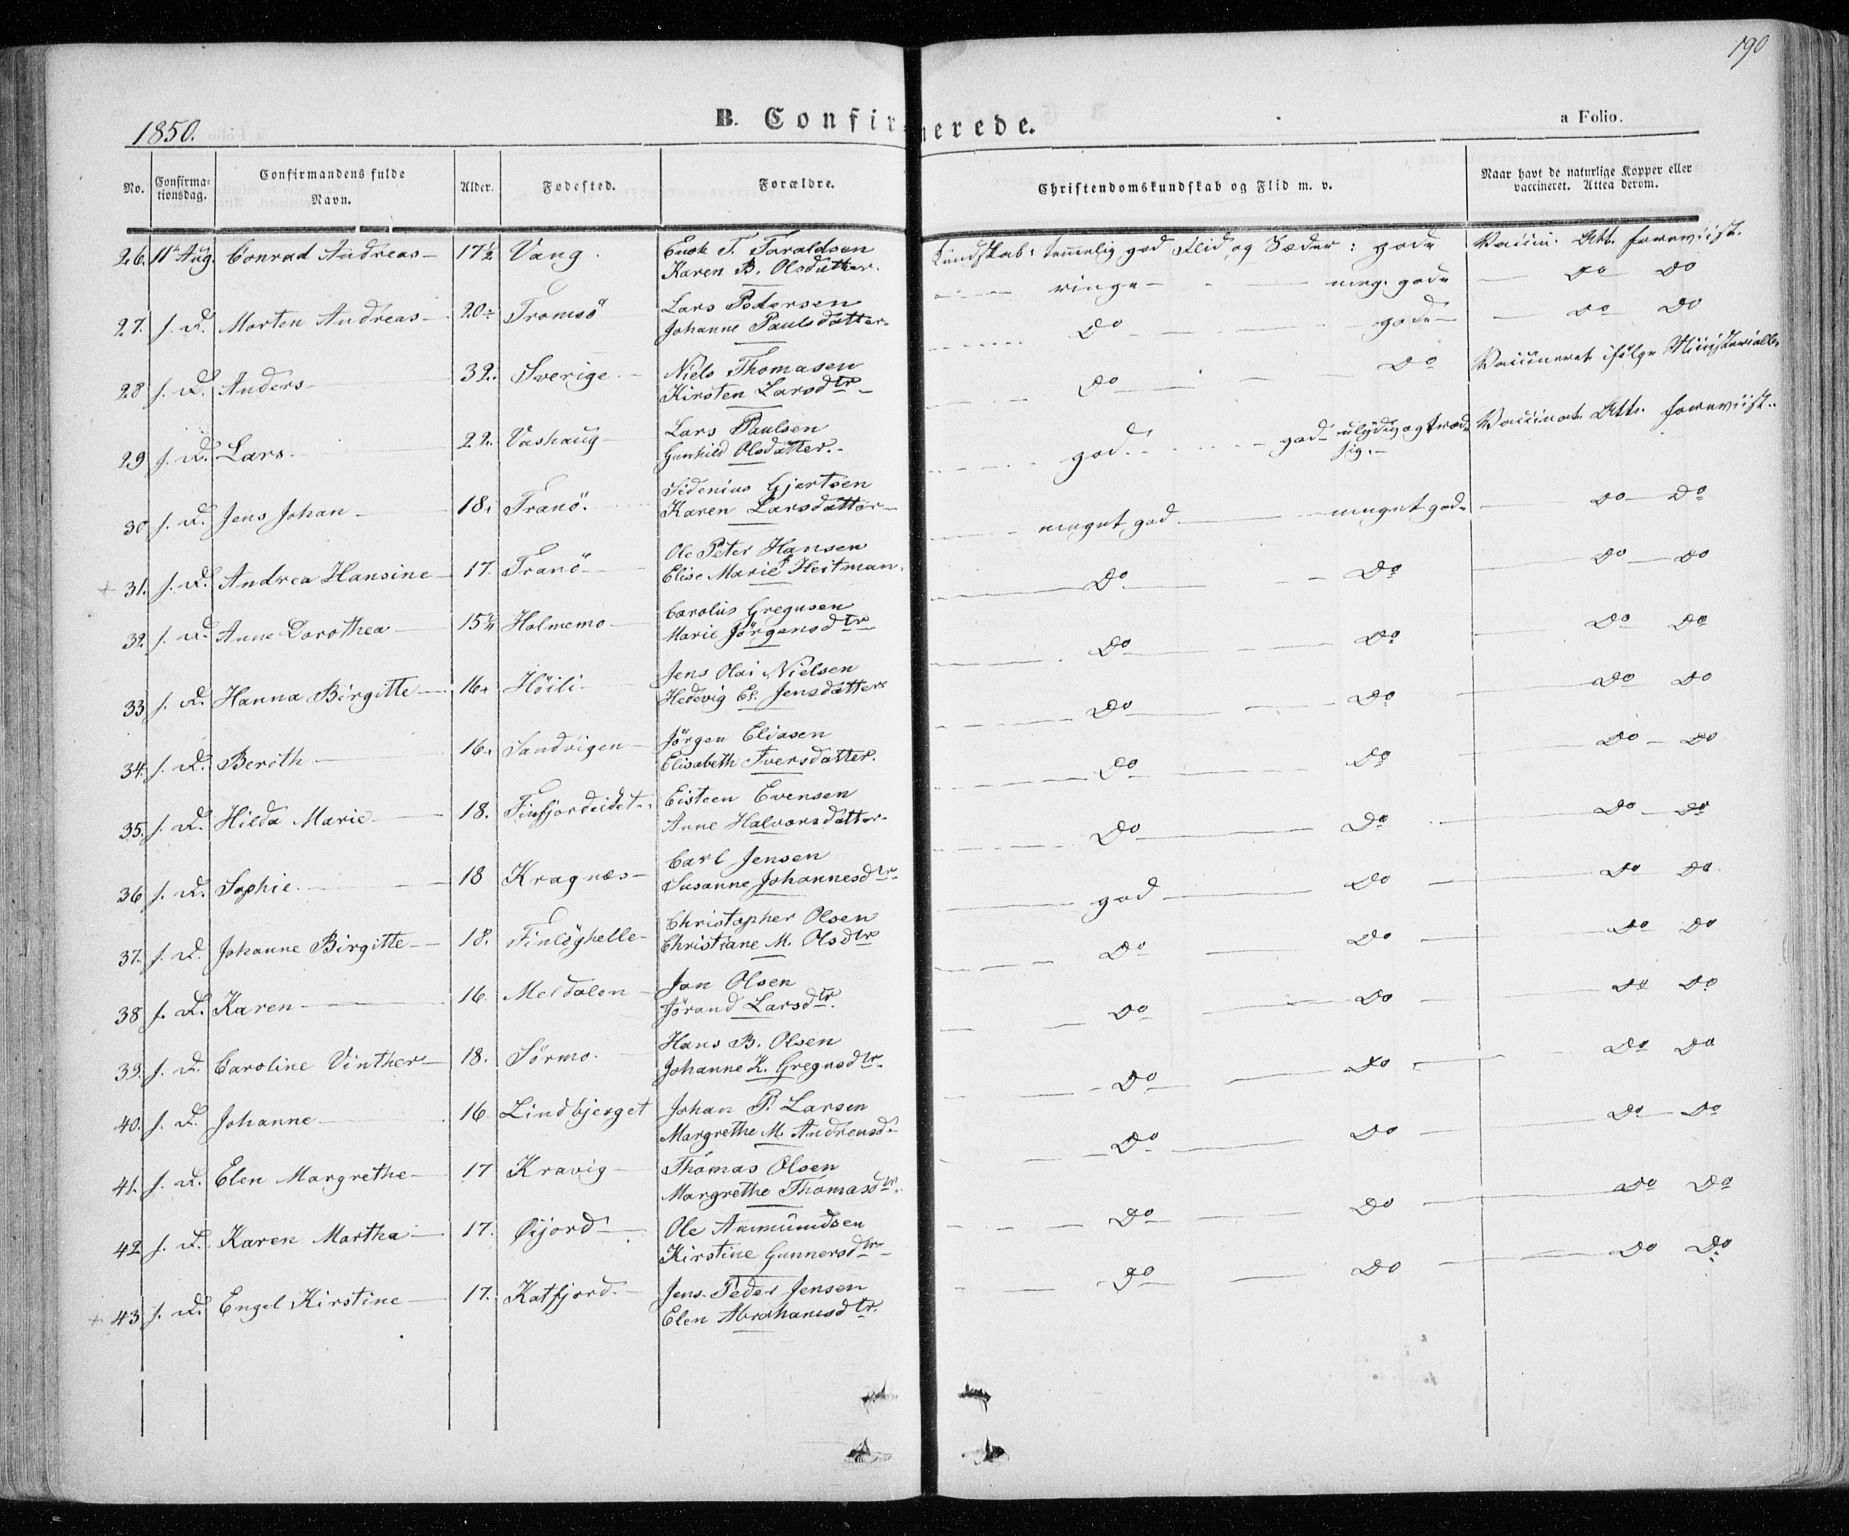 190
1850.
B. Confirmerede.
a Folio.
No.
Confirma-
tionsdag.
Confirmandens fulde
Navn.
Alder.
Fødested.
Forældre.
Christendomskundskab og Flid m. v.
Naar havt de naturlige Kopper eller
vaccineret. Attea derom.
26. 11te Aug. Conrad Andreas 17½ Vang. Enok T. Taraldsen Kundskab: temmelig god Flid og Sæder: gode Vaccin. Att. foreviist.
Karen B. Olsdatter.
27. f. D. Morten Andreas 20 Tromsö Lars Pedersen ringe meg. gode Do Do
Johanne Paulsdatter
28 f. D. Anders 32. Sverige Niels Thomasen Do gode Do Do
Kirsten Larsdtr
29 f. D. Lars 22. Vashaug Lars Paulsen Do Do Vaccineret ifølge
Gunhild Olsdatter.
30 f. D. Jens Johan 18. Tranö. Sidenius Gjertsen god gode Vaccinat. Att. foreviist.
Karen Larsdatter
31. f. D. Andrea Hansine 17. Tranö Ole Peter Hansen meget god meget gode Do Do
Elise Marie Heitman.
32. f. D. Anne Dorothea 15¼ Holmemo Carolus Gregusen Do Do Do Do
Marie Jörgensdtr
33 f. D. Hanna Birgitte 16. Höili Jens Olai Nielsen Do Do Do Do
Hedevig El. Jensdatter
34. f. D. Berith 16. Sandvigen Jörgen Eliasen Do Do Do Do
Elisabeth Iversdatter.
35. f. D. Hilda Marie 18. Finfjordeidet Eisteen Evensen Do Do Do Do
Anne Halvorsdatter
36 f. D. Sophie 18 Kragnæs Carl Jensen Do Do Do Do
Susanne Johannesdtr
37. f. D. Johanne Birgitte 18. Christopher Olsen god Do Do Do
Christiane M. Olsdtr
38 f. D. Karen 16. Meldalen Jon Olsen Do Do Do Do
Jörand Larsdtr.
39. f. D. Caroline Vinther 18. Sörmo. Hans B. Olsen Do Do Do Do
Johanne K. Gregusdtr
40. f. D. Johanne 16. Lindbjerget Johan P. Larsen Do Do Do Do
Margrethe M. Andreasd.
41. f. D. Elen Margrethe 17 Kravig Thomas Olsen Do Do Do Do
Margrethe Thomasdtr.
42 f. D. Karen Martha 17. Öijord Ole Ammundsen Do Do Do Do
Kirstine Gunnersdtr
43 f. D. Engel Kirstine 17. Katfjord Jens Peder Jensen Do Do Do Do
Elen Abrahamsdtr.